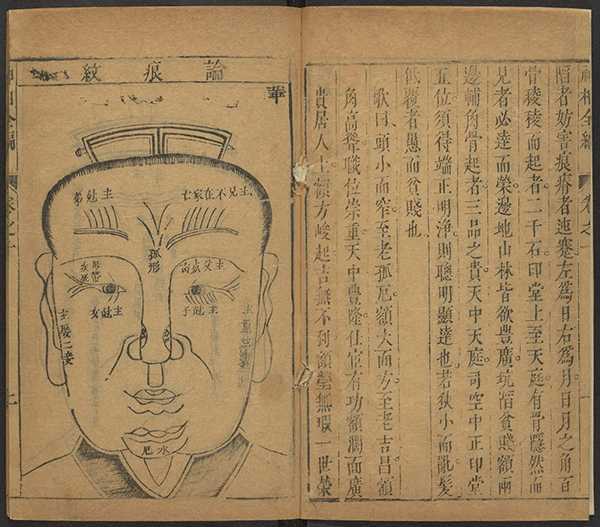 陷者妨害痕瘠者迍蹇左為日右為月日月之角百
骨稜稜而起者二千石印堂上至天庭有骨隱然而
見者必達而榮邊地山林皆欲豐廣坑陷貧賤額兩
邊輔角骨起者三品之貴天中天庭司空中正印堂
五位須得端正明淨則聰明顯達也若狹小而亂髮
低覆者愚而貧賤也
歌曰頭小而窄至老孤厄額大而方至老吉昌額
角高聳職位崇重天中豐隆仕宦有功額濶而廣
貴居人上額方峻起吉無不利額瑩無瑕一世榮
神相全編
卷之
論痕紋
主兄不在家亡
主尅弟
孤形
主父病
主尅子
主尅女
主歿二妻
水厄